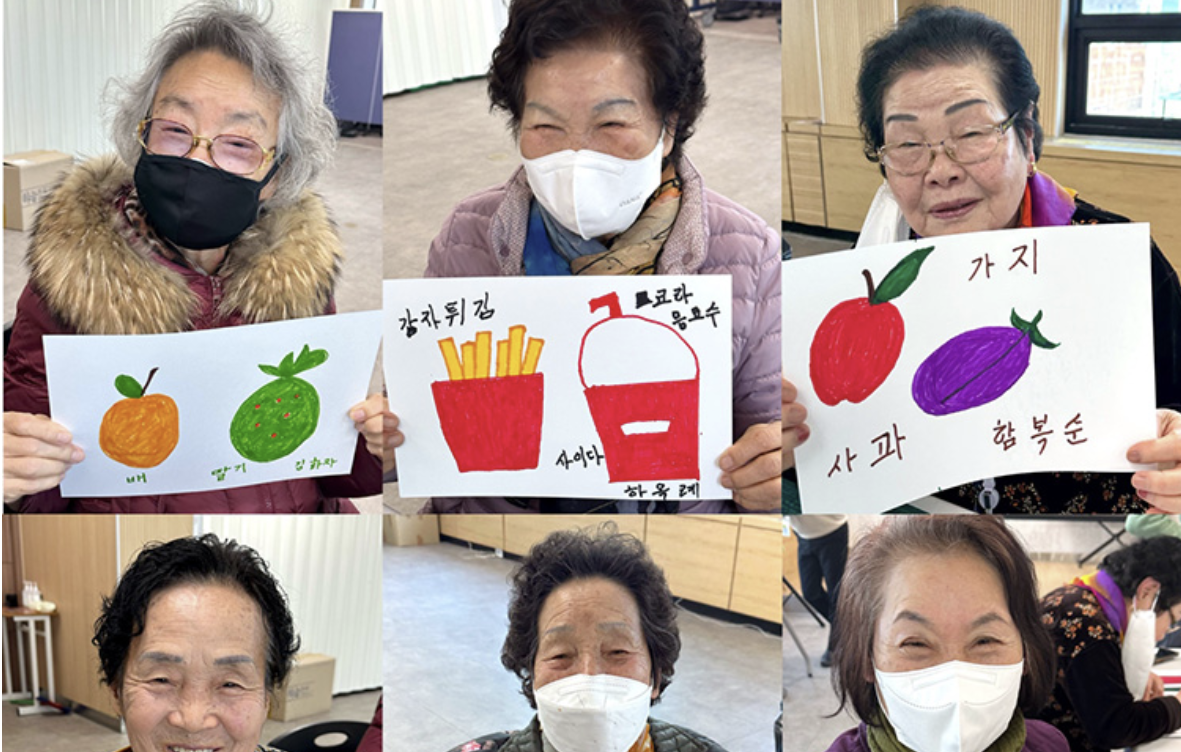 배
딸기
감자튀김
코라
음료수
사이다
하옥례
가지
사과
함복순